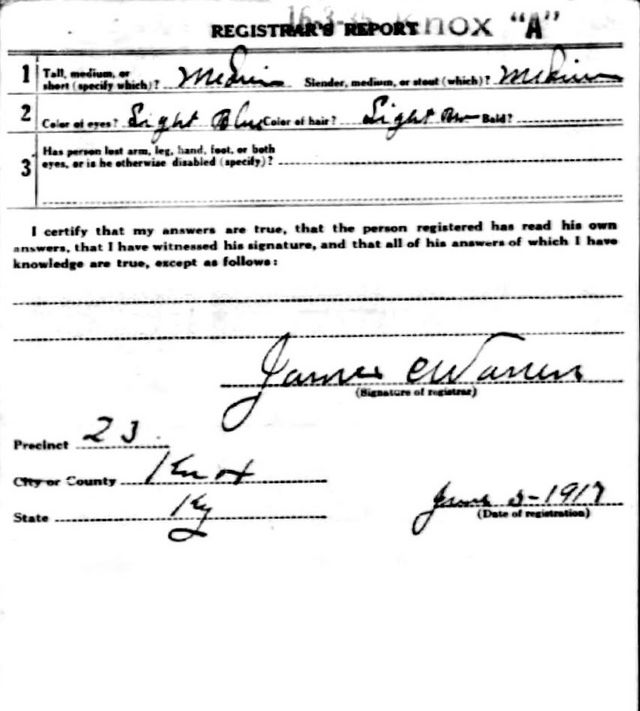 16-3- Knox "A"
REGISTRAR'S REPORT
1 Tall, medium, or short (specify which)? Medium Slender, medium, or stout (which)? Medium
2 Color of eyes? Light Blue Color of hair? Light Br Bald?
3 Has person lost arm, leg, hand, foot, or both
eyes, or is he otherwise disabled (specify)?
I certify that my answers are true, that the person registered has read his own
answers, that I have witnessed his signature, and that all of his answers of which I have
knowledge are true, except as follows:
James C Warren
(Signature of registrar)
Precinct 23.
City or County Knox
State Ky
June 5-1917
(Date of registration)